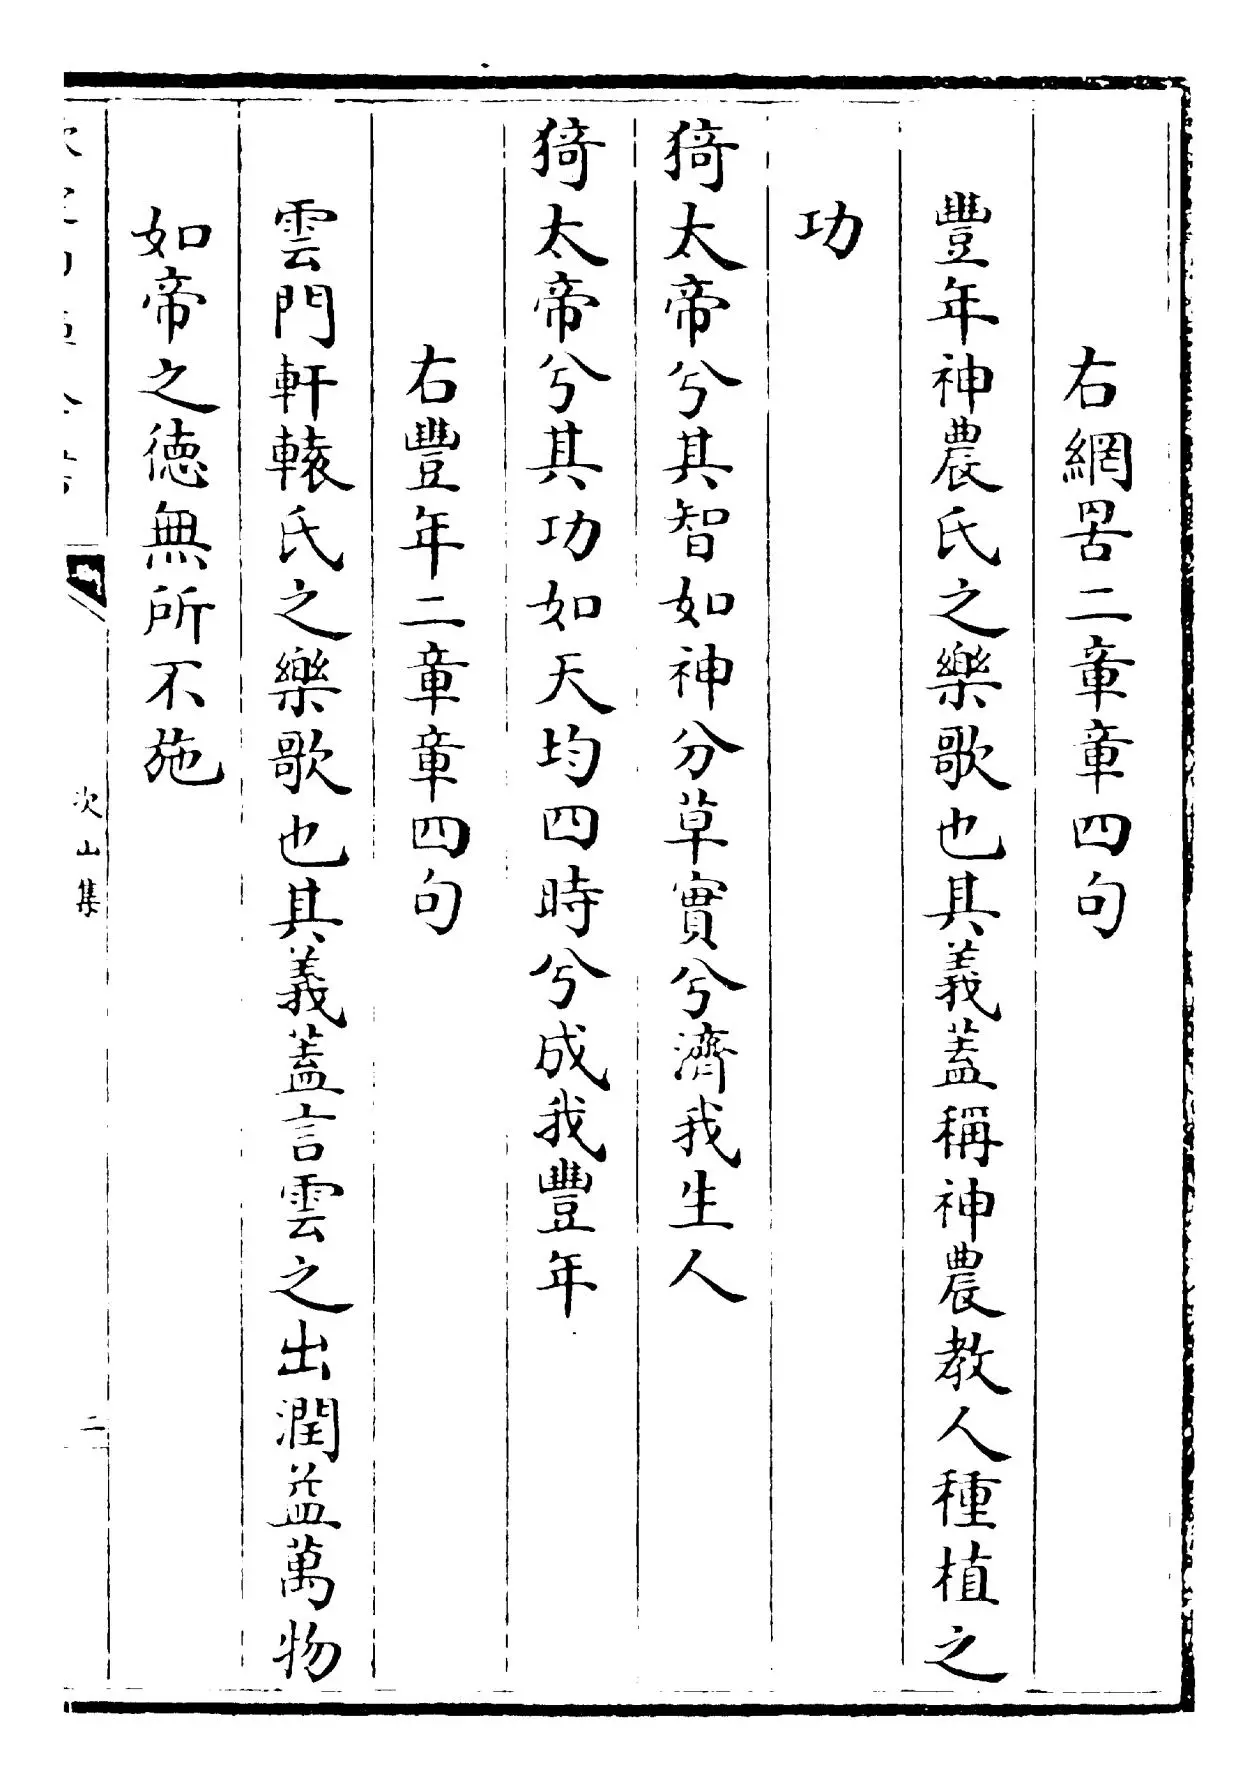 右網罟二章章四句
豐年神農氏之樂歌也其義蓋稱神農教人種植之
功
猗太帝兮其智如神分草實兮濟我生人
猗太帝兮其功如天均四時兮成我豐年
右豐年二章章四句
雲門軒轅氏之樂歌也其義蓋言雲之出潤益萬物
如帝之德無所不施
次山集
二